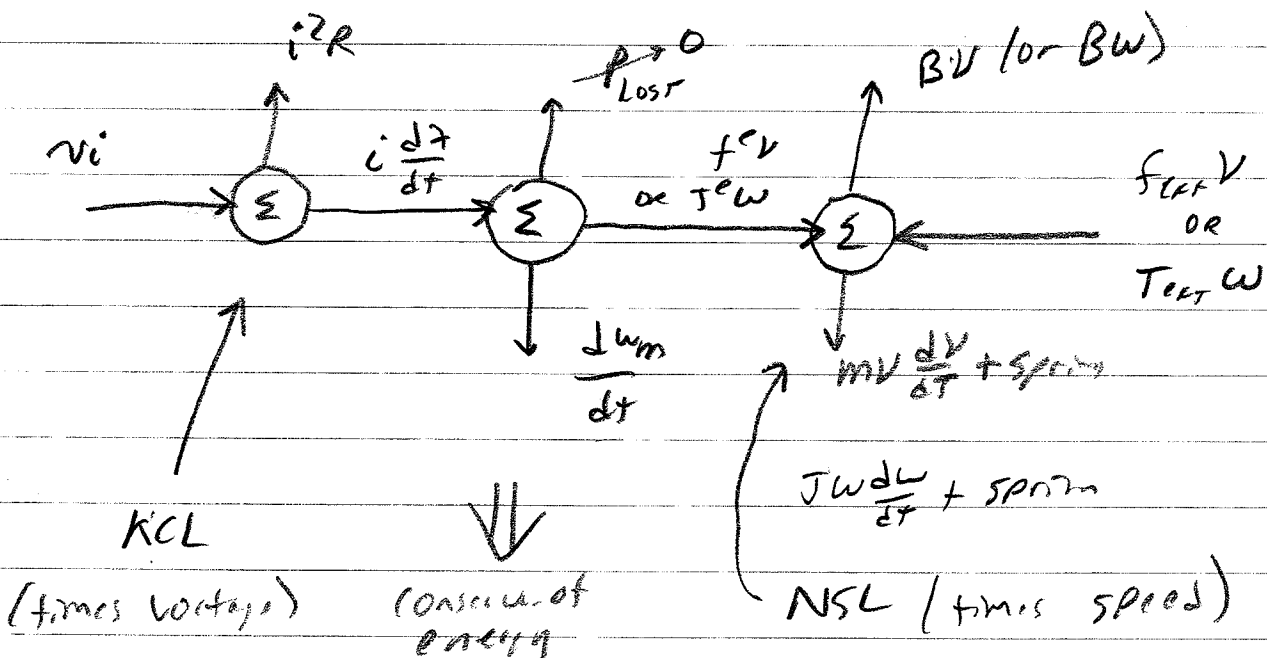 i²R
P LOST → 0
BV (or Bω)
vi
i dλ/dt
fᵉv
OR Tᵉω
f_EXT V
OR
T_EXT ω
Σ
Σ
Σ
dWm/dt
mv dv/dt + spring
Jω dω/dt + spring
KCL
(times voltage)
conserv. of
energy
NSL (times speed)